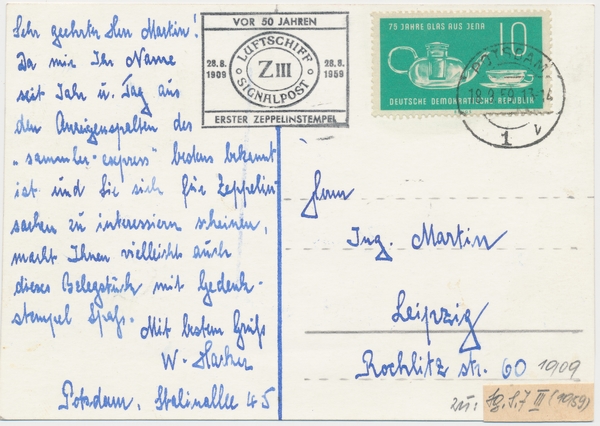 Sehr geehrter Herr Martin!
Da mir Ihr Name
seit Jahr u. Tag aus
den Anzeigenspalten des
"sammler-express" bestens bekannt
ist und Sie sich für Zeppelin-
sachen zu interessieren scheinen,
macht Ihnen vielleicht auch
dieses Belegstück mit Gedenk-
stempel Spaß. Mit bestem Gruß
W.
Potsdam, Stalinallee 45
VOR 50 JAHREN
28.8.
1909
LUFTSCHIFF
Z III
SIGNALPOST
28.8.
1959
ERSTER ZEPPELINSTEMPEL
75 JAHRE GLAS AUS JENA
10
DEUTSCHE DEMOKRATISCHE REPUBLIK
POTSDAM
18.9.59.13-14
1 v
Herrn
Ing. Martin
Leipzig
Rochlitz str. 60
1909
zu:
III (1959)